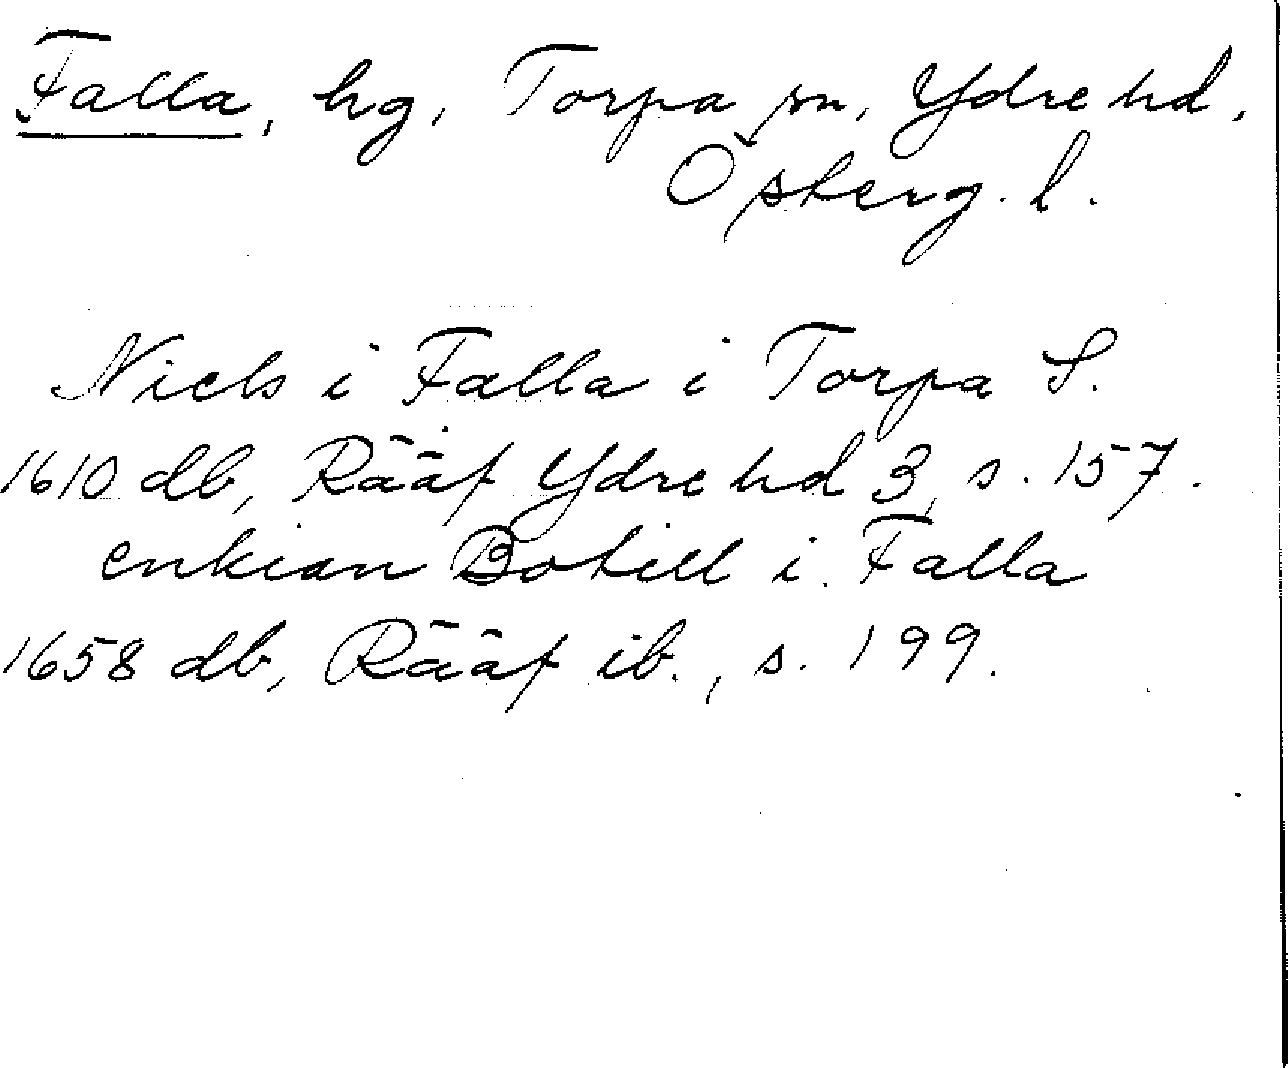 Falla, hg, Torpa sn, Ydre hd,
Österg. l.
Niels i Falla i Torpa S.
1610 db, Rääf Ydre hd 3, s. 157.
enkian Botill i Falla
1658 db, Rääf ib., s. 199.